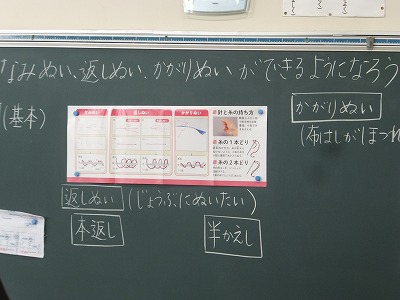 なみぬい、返しぬい、かがりぬいができるようになろう
(基本)
かがりぬい
(布はしがほつれ
なみぬい
返しぬい
かがりぬい
針と糸の持ち方
糸の1本どり
糸の2本どり
返しぬい (じょうぶにぬいたい)
本返し
半かえし